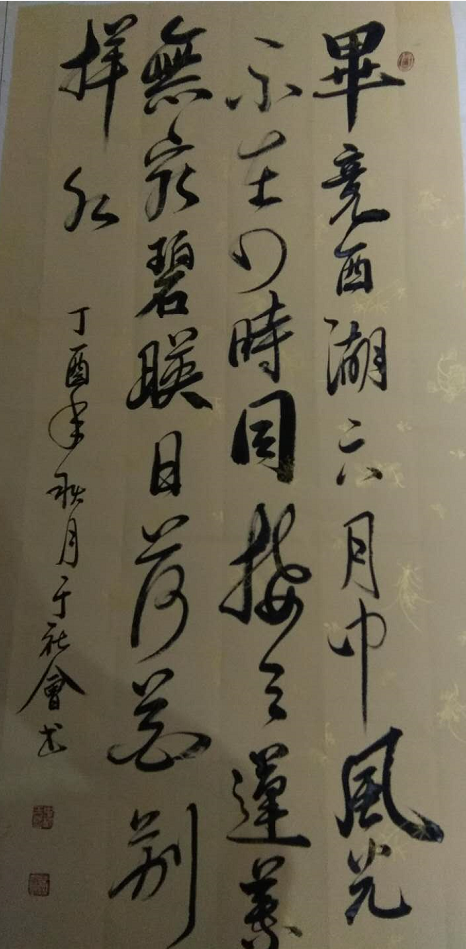 畢竟西湖六月中風光
不在四時同接天蓮葉
無窮碧暎日荷花别
样红
丁酉年秋月于社會书